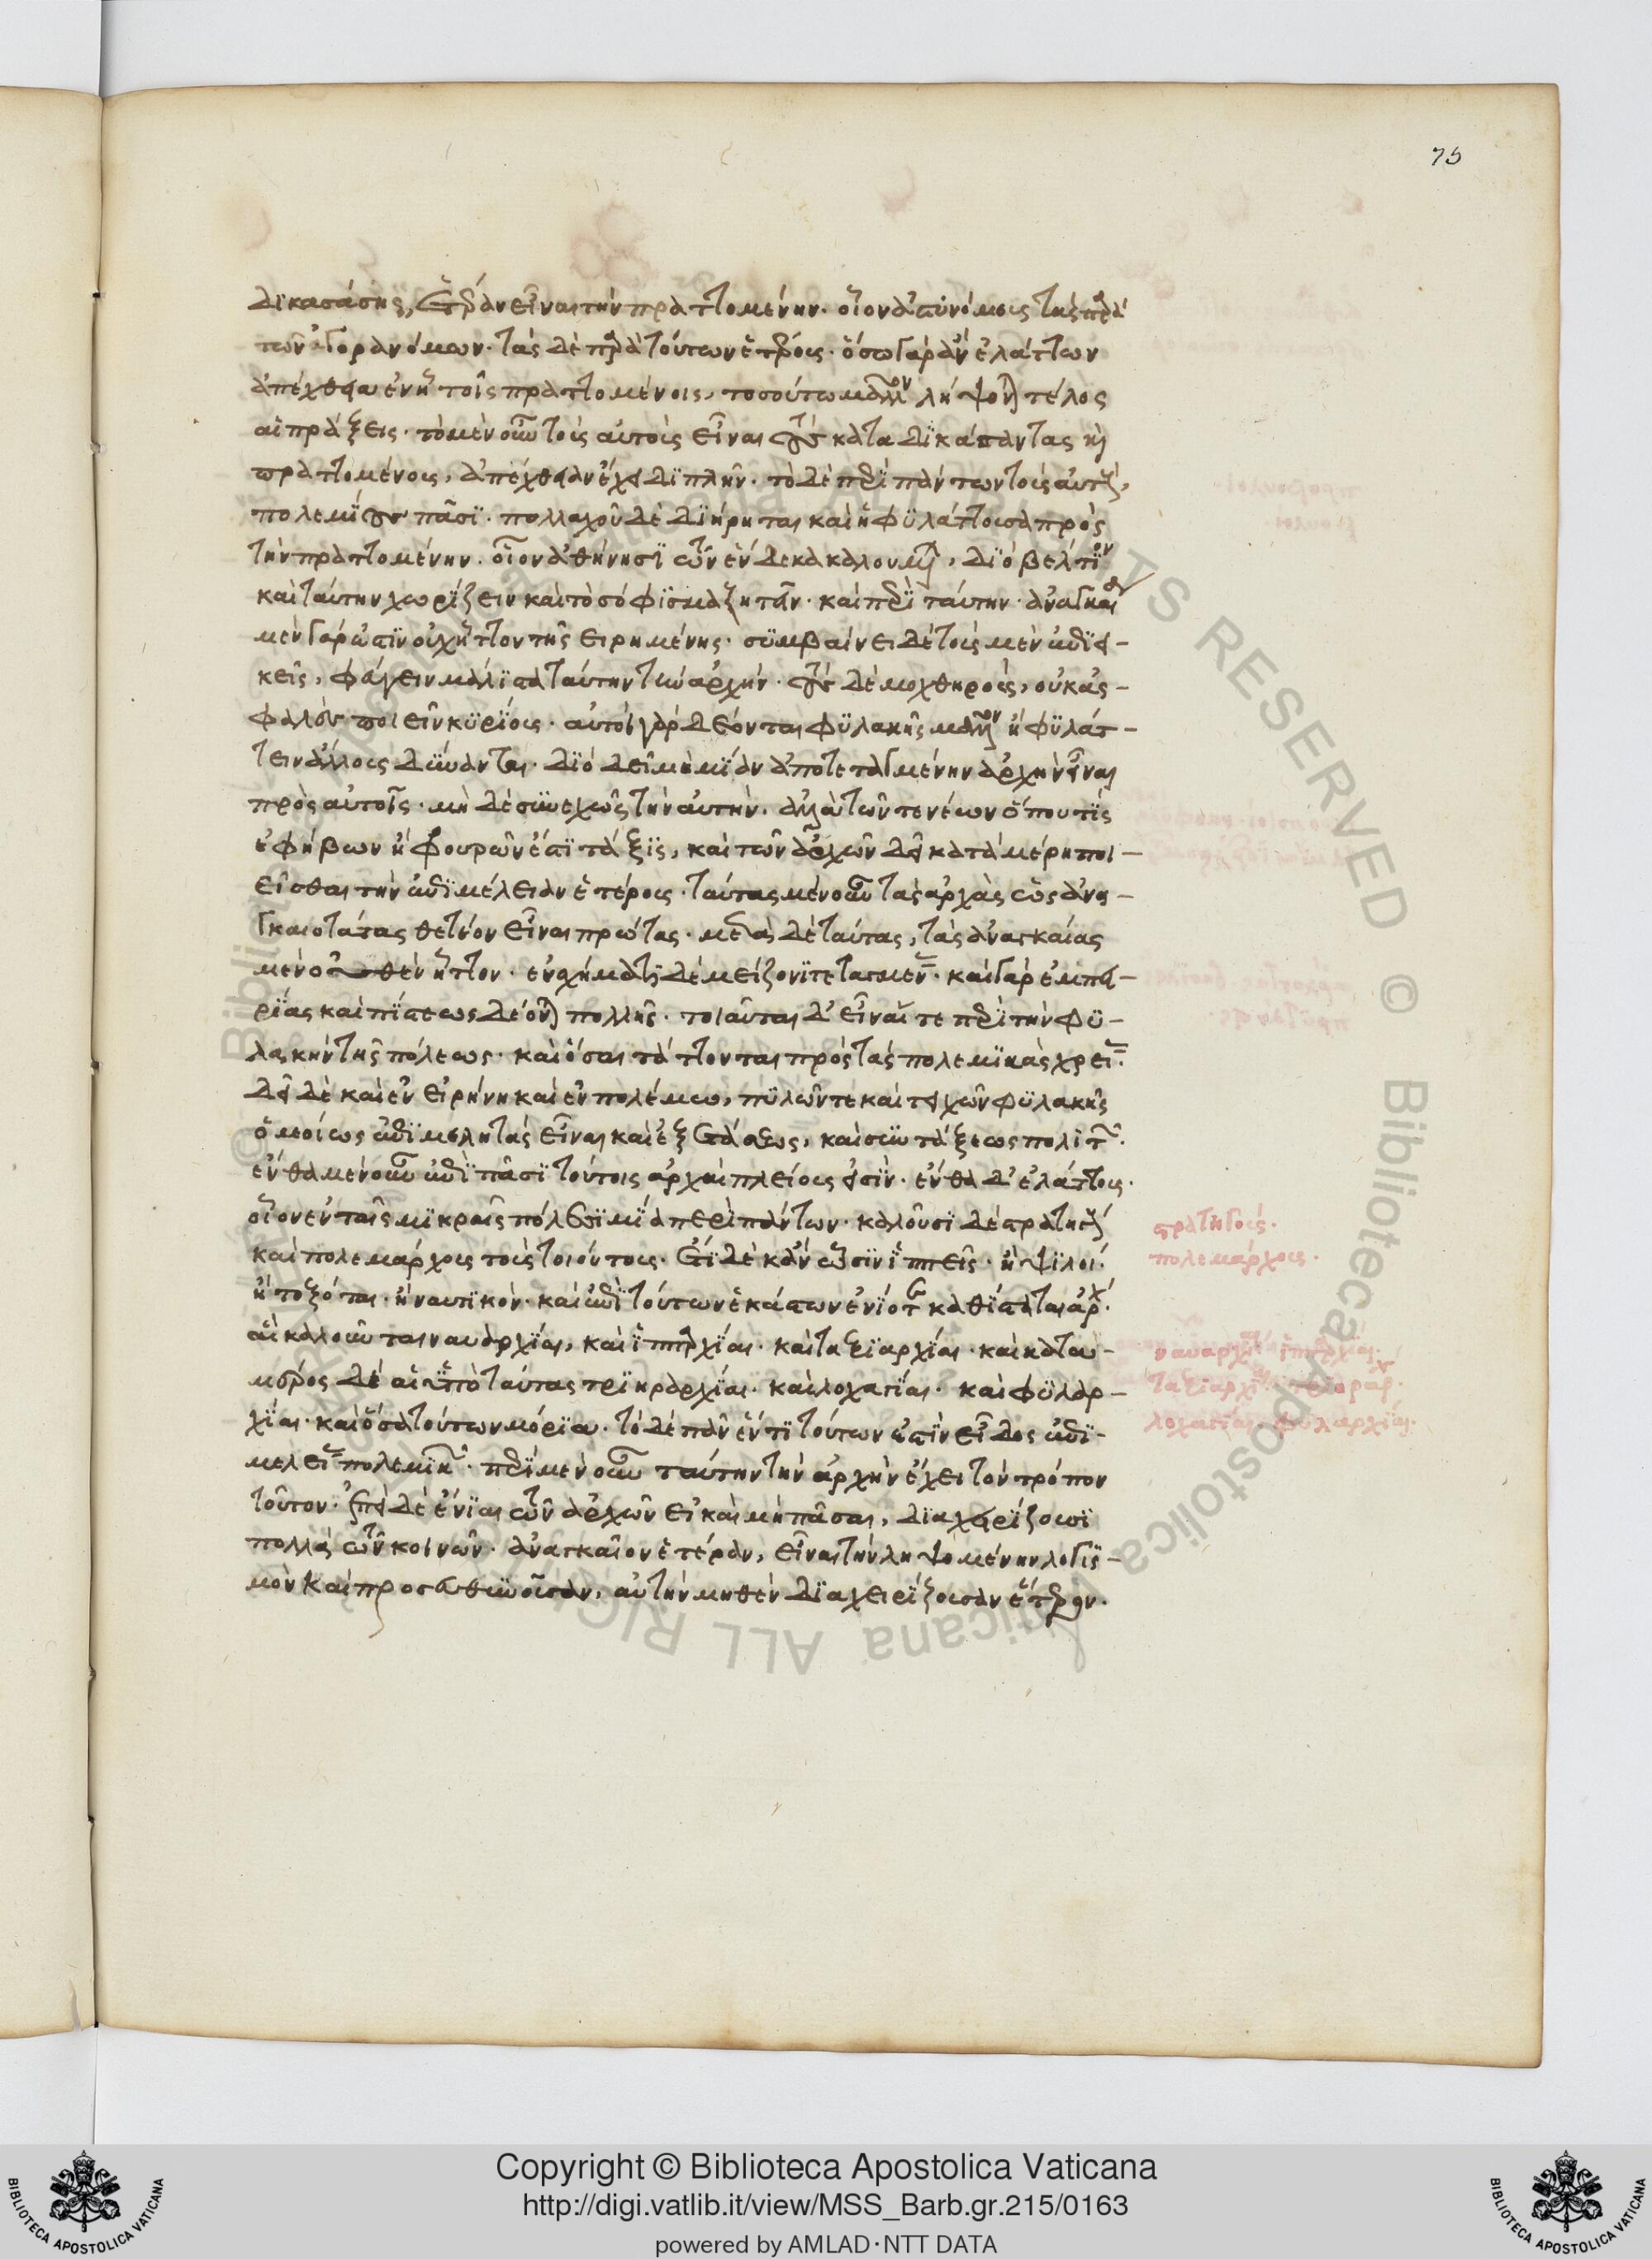 75
δικασάσης, ἑτέραν εἶναι τὴν πραττομένην. οἷον ἀστυνόμοις τὰς παρὰ
τῶν ἀγορανόμων. τὰς δὲ παρὰ τούτων ἑτέροις. ὅσω γὰρ ἂν ἐλάττων
ἀπέχθεια ἐνῇ τοῖς πραττομένοις, τοσούτω μᾶλλον λήψονται τέλος
αἱ πράξεις. τὸ μὲν οὖν τοὺς αὐτοὺς εἶναι τοὺς καταδικάσαντας καὶ
πραττομένους, ἀπέχθειαν ἔχει διπλῆν. τὸ δὲ περὶ πάντων τοὺς αὐτοὺς,
πολεμίους πᾶσι. πολλαχοῦ δὲ διήρηται καὶ ἡ φυλάττουσα πρὸς
τὴν πραττομένην. οἷον ἀθήνησι τῶν ἕνδεκα καλουμένων, διὸ βέλτιον
καὶ ταύτην χωρίζειν καὶ τὸ σόφισμα ζητεῖν. καὶ περὶ ταύτην. ἀναγκαία
μὲν γάρ ἐστιν οὐχ ἧττον τῆς εἰρημένης. συμβαίνει δὲ τοὺς μὲν ἐπιει-
κεῖς, φεύγειν μάλιστα ταύτην τὴν ἀρχὴν. τοὺς δὲ μοχθηροὺς, οὐκ ἀσ-
φαλὲς ποιεῖν κυρίους. αὐτοὶ γὰρ δέονται φυλακῆς μᾶλλον ἢ φυλάτ-
τειν ἄλλους δύνανται. διὸ δεῖ μὴ μίαν ἀποτεταγμένην ἀρχὴν εἶναι
πρὸς αὐτοῖς. μὴ δὲ συνεχῶς τὴν αὐτὴν. ἀλλὰ τῶν τε νέων ὅπου τὶς
ἐφήβων ἢ φρουρῶν ἐστὶ τάξις, καὶ τῶν ἀρχῶν δεῖ κατὰ μέρη ποι-
εῖσθαι τὴν ἐπιμέλειαν ἑτέρους. ταύτας μὲν οὖν τὰς ἀρχὰς ὡς ἀνα-
γκαιοτάτας θετέον εἶναι πρώτας. μετὰ δὲ ταύτας, τὰς ἀναγκαίας
μὲν οὐθὲν ἧττον. ἐν σχήματι δὲ μείζονι τεταγμένας. καὶ γὰρ ἐμπει-
ρίας καὶ πίστεως δέονται πολλῆς. τοιαῦται δ' εἶναί τε περὶ τὴν φυ-
λακὴν τῆς πόλεως. καὶ ὅσαι τάττονται πρὸς τὰς πολεμικὰς χρείας.
δεῖ δὲ καὶ ἐν εἰρήνη καὶ ἐν πολέμω, πυλῶν τε καὶ τειχῶν φυλακῆς
ὁμοίως ἐπιμελητὰς εἶναι καὶ ἐξετάσεως, καὶ συντάξεως πολιτῶν.
ἔνθα μὲν οὖν ἐπὶ πᾶσι τούτοις ἀρχαὶ πλείους εἰσὶν. ἔνθα δ' ἐλάττους.
οἷον ἐν ταῖς μικραῖς πόλεσι μία περὶ πάντων. καλοῦσι δὲ στρατηγοὺς
καὶ πολεμάρχους τοὺς τοιούτους. ἔτι δὲ κἂν ὦσιν ἱππεῖς. ἢ ψιλοί.
ἢ τοξόται. ἢ ναυτικὸν. καὶ ἐπὶ τούτων ἑκάστων ἐνίοτε καθίσταται ἀρχ.
αἳ καλοῦνται ναυαρχίαι, καὶ ἱππαρχίαι. καὶ ταξιαρχίαι. καὶ κατα-
μέρος δὲ αἱ ὑπὸ ταύτας τριηραρχίαι. καὶ λοχαγίαι. καὶ φυλαρ-
χίαι. καὶ ὅσα τούτων μόρια. τὸ δὲ πᾶν ἕν τι τούτων ἐστὶν εἶδος ἐπι-
μελείας πολεμικῶν. περὶ μὲν οὖν ταύτην τὴν ἀρχὴν ἔχει τὸν τρόπον
τοῦτον. ἐπεὶ δὲ ἔνιαι τῶν ἀρχῶν εἰ καὶ μὴ πᾶσαι, διαχειρίζουσι
πολλὰ τῶν κοινῶν. ἀναγκαῖον ἑτέραν, εἶναι τὴν ληψομένην λογισ-
μὸν καὶ προσευθύνουσαν, αὐτὴν μηθὲν διαχειρίζουσαν ἕτερον.
στρατηγοὺς.
πολεμάρχους.
ναυαρχίαι ἱππαρχίαι.
λοχαγίαι φυλαρχίαι.
Copyright © Biblioteca Apostolica Vaticana
http://digi.vatlib.it/view/MSS_Barb.gr.215/0163
powered by AMLAD·NTT DATA
BIBLIOTECA APOSTOLICA VATICANA
BIBLIOTECA APOSTOLICA VATICANA